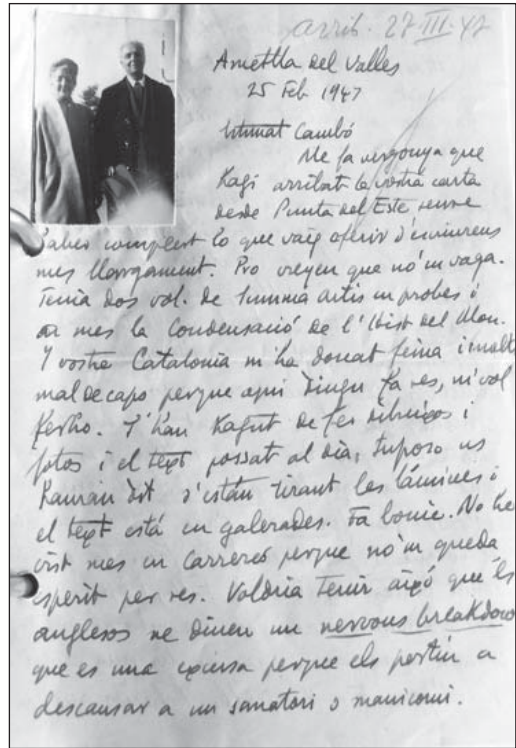 arrib. 27-III-47
Ametlla del Valles
25 Feb 1947
Estimat Cambó
Me fa vergonya que
hagi arribat la vostra carta
desde Punta del Este sense
haber complert lo que vaig oferir d'escriureus
mes llargament. Pro creyeu que nó'm vaga.
Tenia dos vol. de Summa Artis en probes i
a mes la Condensació de l'Hist del Mon.
Y vostra Catalonia m'ha donat feina i molt
mal de caps perque aqui ningu fa res, ni vol
ferho. S'han hagut de fer dibuixos i
fotos i el text possat al dia, suposo us
hauràn dit s'están tirant les làmines i
el text está en galerades. Fa bonic. No he
vist mes en Carreres perque nó'm queda
esperit per res. Voldria tenir aixó que els
anglesos ne diuen un nervous breakdown
que es una excusa perque els portin a
descansar a un sanatori o manicomi.